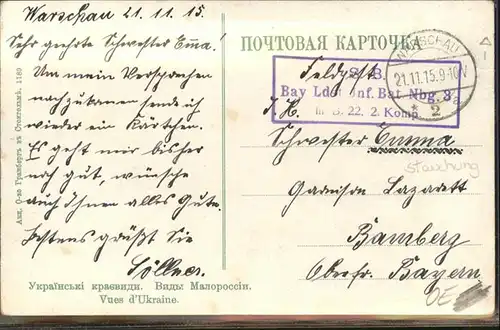 Warschau 21. 11. 15.
Sehr geehrte Schwester Emma!
Um mein Versprechen
nachzukommen sende ich
wieder ein Kärtchen.
Es geht mir bisher
noch gut, wünsche
auch Ihnen alles Gute.
Bestens grüßt Sie
Söllner.
Українські краєвиди. Виды Малороссіи.
Vues d'Ukraine.
Акц. О-во Гранбергъ въ Стокгольмѣ. 1789
ПОЧТОВАЯ КАРТОЧКА
WARSCHAU
21.11.15.9-10V
* 2 a
Feldpost
S. B.
Bay Lds. Inf. Bat. Nbg. 3
III. B. 22. 2. Komp.
Schwester Emma
Stauchung
Garnison Lazarett
Bamberg
Oberfr. Bayern
OE